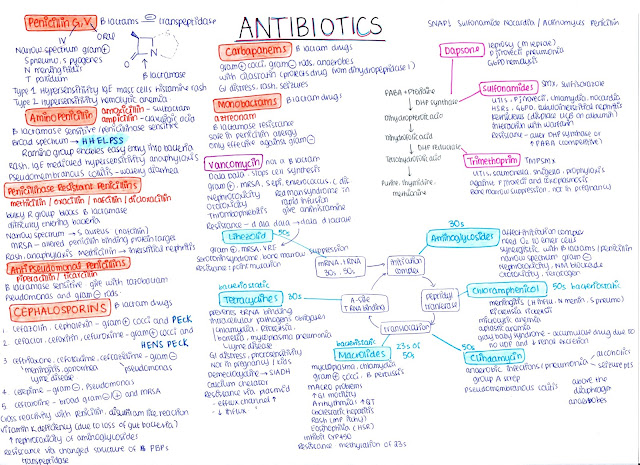 ANTIBIOTICS
SNAP! Sulfonamide Nocardia / Actinomyces Penicillin
Penicillin G, V
IV
ORAL
B lactams ⊖ transpeptidase
Narrow spectrum gram⊕
S pneumo, S pyogenes
N meningitidis
T pallidum
B lactamase
Type 1 Hypersensitivity IgE mast cells histamine rash
Type 2 Hypersensitivity hemolytic anemia
Amino Penicillin
amoxicillin
ampicillin
- sulbactam
- clavulanic acid
B lactamase sensitive / penicillinase sensitive
Broad spectrum → HHELPSS
R amino group enables easy entry into bacteria
Rash, IgE mediated hypersensitivity anaphylaxis
Pseudomembranous colitis - watery diarrhea
Penicillinase Resistant Penicillins
methicillin / oxacillin / nafcillin / dicloxacillin
bulky R group blocks B lactamase
difficulty entering bacteria
Narrow spectrum → S aureus (nafcillin)
MRSA - altered penicillin binding protein target
Rash, anaphylaxis methicillin → interstitial nephritis
Antipseudomonal Penicillins
piperacillin / ticarcillin
B lactamase sensitive give with tazobactam
Pseudomonas and gram ⊖ rods
CEPHALOSPORINS
B lactam drugs
1. cefazolin, cephalexin - gram ⊕ cocci and PECK
2. cefaclor, cefoxitin, cefuroxime - gram ⊕ cocci and
HENS PECK
3. ceftriaxone, cefotaxime, ceftazidime - gram ⊖
meningitis, gonorrhea
Lyme disease
pseudomonas
4. cefepime - gram ⊖, pseudomonas
5. ceftaroline - broad gram ⊖ + and MRSA
Cross reactivity with penicillin, disulfiram like reaction
Vitamin K deficiency (due to loss of gut bacteria)
↑ nephrotoxicity of aminoglycosides
Resistance via changed structure of PBPs
transpeptidase
Carbapanems
B lactam drugs
gram⊕ cocci, gram⊖ rods, anaerobes
with cilastatin (protects drug from dihydropeptidase 1)
GI distress, rash, seizures
Monobactams
B lactam drugs
aztreonam
B lactamase resistance
safe in penicillin allergy
only effective against gram⊖
Vancomycin
NOT a B lactam
Dala Dala → stops cell synthesis
gram ⊕, MRSA, S epi, enterococcus, C dif
Nephrotoxicity
Ototoxicity
Thrombophlebitis
Red man syndrome in
rapid infusion
give antihistamine
Resistance - d ala dala → dala d lactate
Linezolid
50s
gram ⊕, MRSA, VRE
serotonin syndrome, bone marrow suppression
Resistance: point mutation
mRNA, tRNA
30s, 50s
Initiation
complex
A-site
tRNA binding
Peptidyl
transferase
translocation
bacteriostatic
Tetracyclines
30s
prevents tRNA binding
intracellular pathogens obligues
chlamydia, Rickettsia,
borrelia, mycoplasma pneumonia
Lyme disease
GI distress, photosensitivity
Not in pregnancy / kids
Demeclocycline → SIADH
calcium chelator
Resistance via plasmid
- efflux channel ↑
- ↓ influx
bacteriostatic
Macrolides
23s of
50s
mycoplasma, chlamydia
gram ⊕ cocci, B pertussis
MACRO problems
↑ GI motility
Arrhythmias ↑ QT
Cholestatic hepatitis
Rash
Eosinophilia (HSR)
inhibit CYP450
Resistance methylation of 23s
Dapsone
leprosy (M leprae)
P jirovecii pneumonia
G6PD hemolysis
Sulfonamides
SMX, sulfisoxazole
UTIs, P jirovecii, chlamydia, nocardia
HSRs, G6PD, tubulointerstitial nephritis
Kernicterus (displace UCB on albumin)
Interaction with warfarin
Resistance - over DHP synthase or
↑ PABA (competitive)
PABA + Pteridine
DHP synthase
Dihydropteroic acid
Dihydrofolic acid
DHF reductase
Tetrahydrofolic acid
Purine, thymidine,
methionine
Trimethoprim
TMPSMX
UTIs, salmonella, shigella, prophylaxis
against P jirovecii and toxoplasmosis
Bone marrow suppression, not in pregnancy
30s
Aminoglycosides
affect initiation complex
need O2 to enter cells
synergistic with B lactams / penicillin
narrow spectrum gram ⊖
Nephrotoxicity, NMJ blockade
Ototoxicity, Teratogen
Chloramphenicol
50s bacteriostatic
meningitis (H influ, N menin, S pneumo)
Rickettsia rickettsii
microcytic anemia
aplastic anemia
gray baby syndrome - accumulated drug due to
no UDP and ↓ renal excretion
50s
Clindamycin
anaerobic infections / pneumonia -
group A strep
pseudomembranous colitis
alcoholics
seizure pts
above the
diaphragm
anaerobes